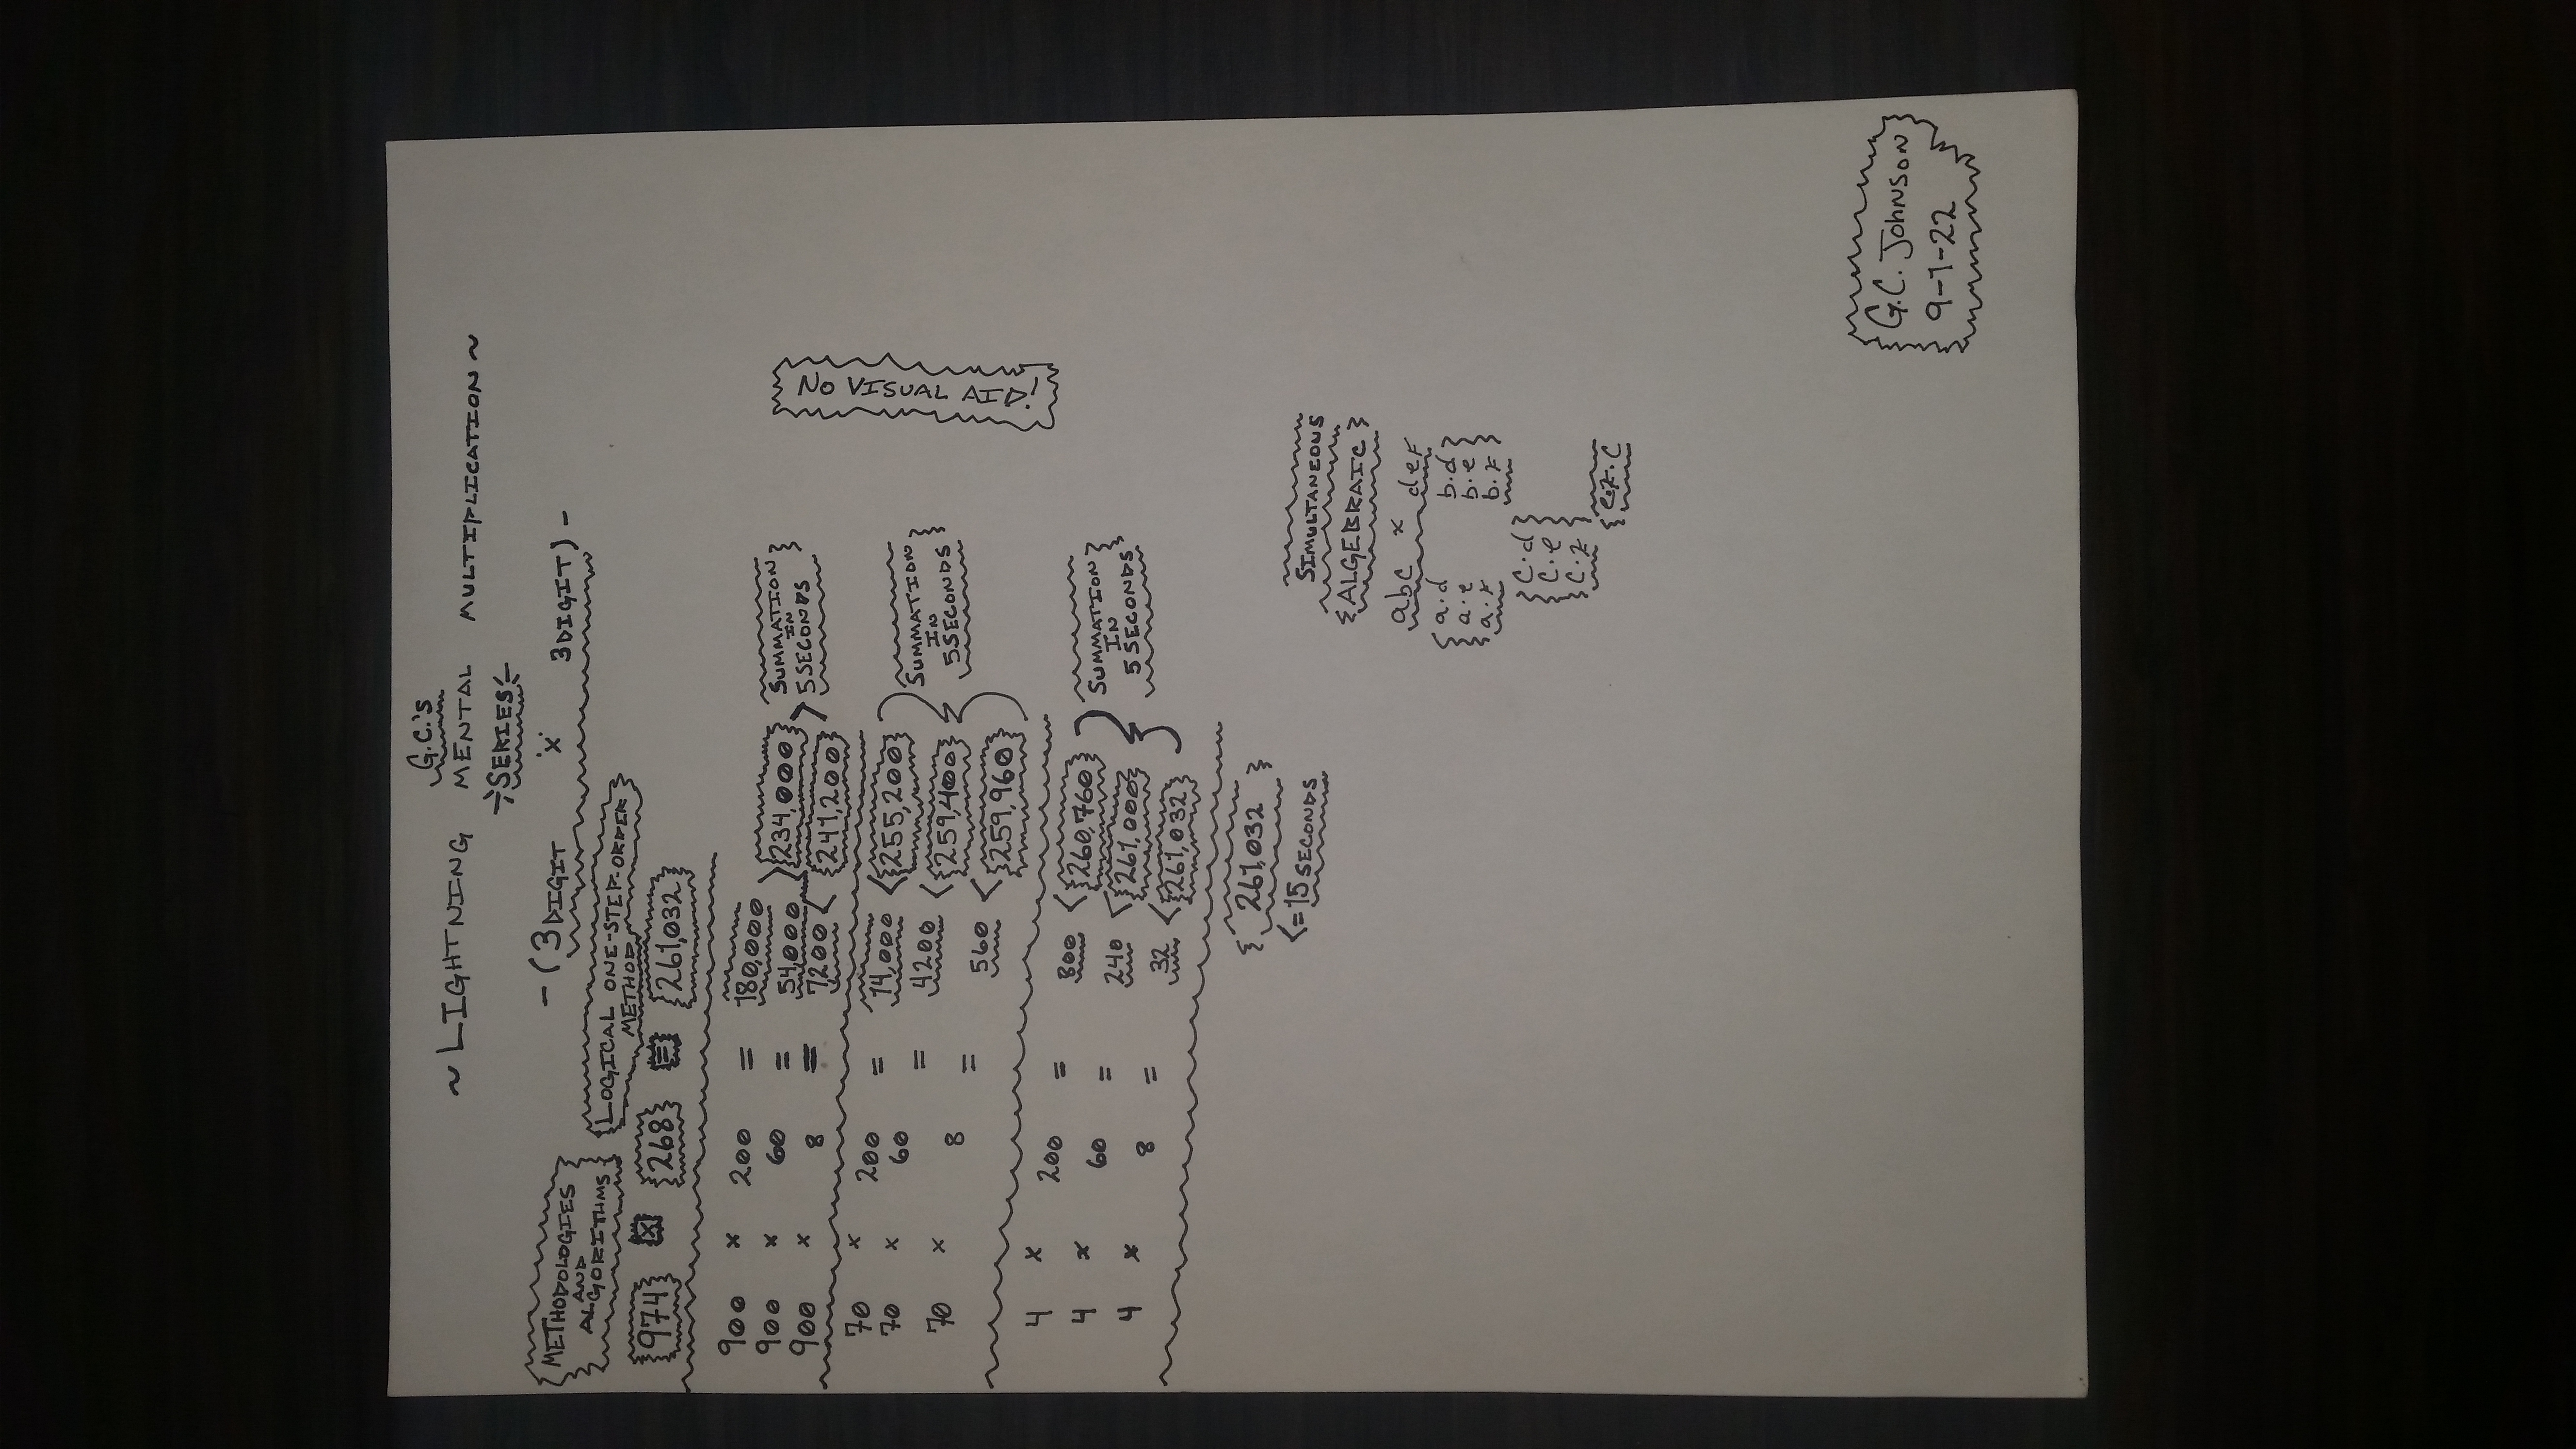 G.C.'s
~ LIGHTNING MENTAL MULTIPLICATION ~
SERIES
- (3 DIGIT × 3 DIGIT) -
METHODOLOGIES
AND
ALGORITHMS
LOGICAL ONE-STEP-ORDER
METHOD
974 × 268 = 261,032
900 × 200 = 180,000
900 × 60 = 54,000 234,000
900 × 8 = 7200 < 241,200
SUMMATION
IN
5 SECONDS
70 × 200 = 14,000 < 255,200
70 × 60 = 4200 < 259,400
70 × 8 = 560 < 259,960
SUMMATION
IN
5 SECONDS
4 × 200 = 800 < 260,760
4 × 60 = 240 < 261,000
4 × 8 = 32 < 261,032
SUMMATION
IN
5 SECONDS
261,032
<= 15 SECONDS
NO VISUAL AID!
SIMULTANEOUS
{ALGEBRAIC}
abc × def
a·d b·d
a·e b·e
a·f b·f
c·d
c·e
c·f
G.C. JOHNSON
9-1-22